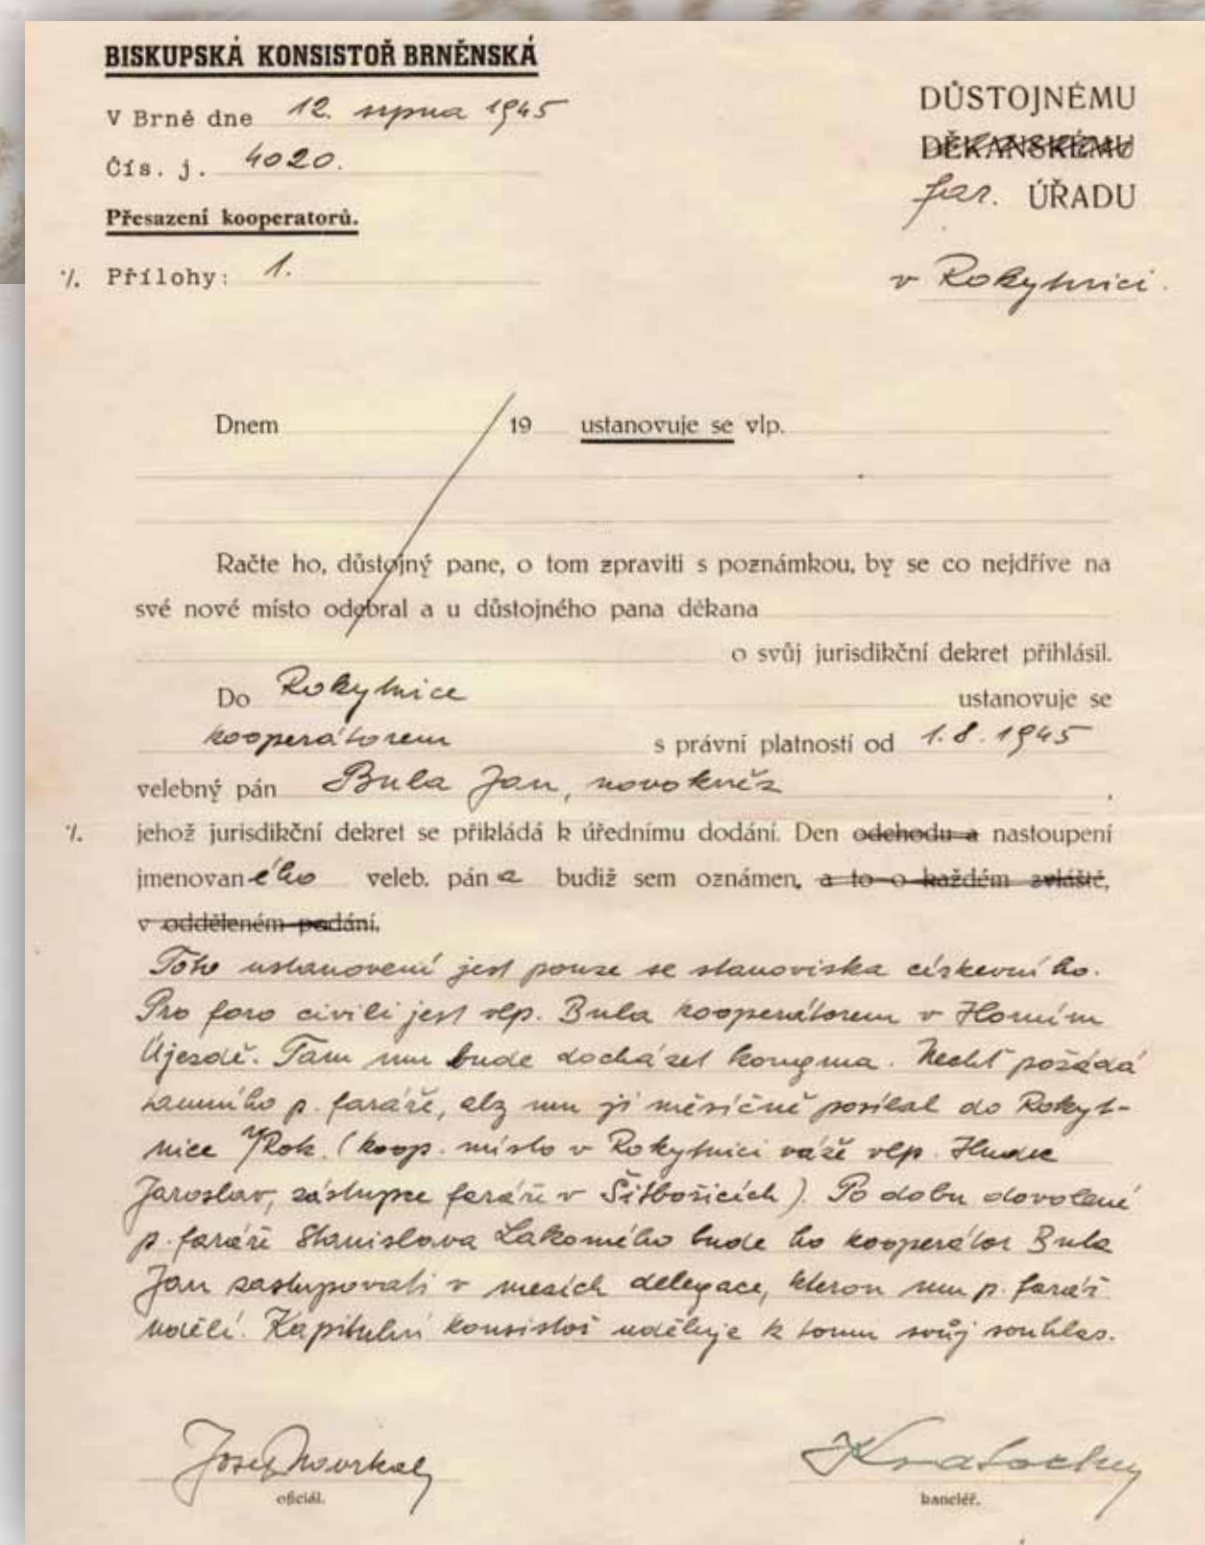 BISKUPSKÁ KONSISTOŘ BRNĚNSKÁ
V Brně dne 12. srpna 1945
Čís. j. 4020.
Přesazení kooperatorů.
·/. Přílohy: 1.
DŮSTOJNÉMU
DĚKANSKÉMU
far. ÚŘADU
v Rokytnici.
Dnem 19 ustanovuje se vlp.
Račte ho, důstojný pane, o tom zpraviti s poznámkou, by se co nejdříve na
své nové místo odebral a u důstojného pana děkana
o svůj jurisdikční dekret přihlásil.
Do Rokytnice ustanovuje se
kooperátorem s právní platností od 1.8.1945
velebný pán Bula Jan, novokněz .
·/. jehož jurisdikční dekret se přikládá k úřednímu dodání. Den odchodu a nastoupení
jmenovaného veleb. pána budiž sem oznámen, a to o každém zvláště,
v odděleném podání.
Toto ustanovení jest pouze se stanoviska církevního.
Pro foro civili jest vlp. Bula kooperátorem v Horním
Újezdě. Tam mu bude docházet kongrua. Nechť požádá
tamního p. faráře, aby mu ji měsíčně posílal do Rokyt-
nice n/Rok. (koop. místo v Rokytnici váže vlp. Hudec
Jaroslav, zástupce faráře v Šitbořicích). Po dobu dovolené
p. faráře Stanislava Lakomého bude ho kooperátor Bula
Jan zastupovati v mezích delegace, kterou mu p. farář
udělí. Kapitulní konsistoř uděluje k tomu svůj souhlas.
Josef
oficiál.
kancléř.